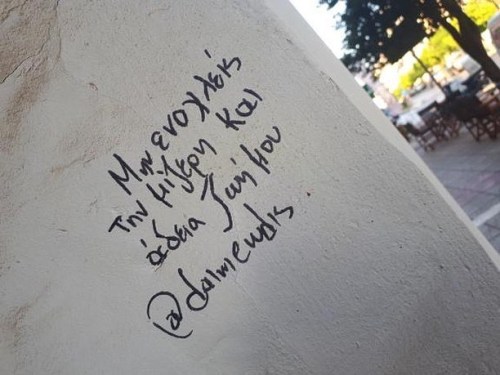 Μην ενοχλείς
την μίζερη και
άδεια ζωή μου
@dalmendis